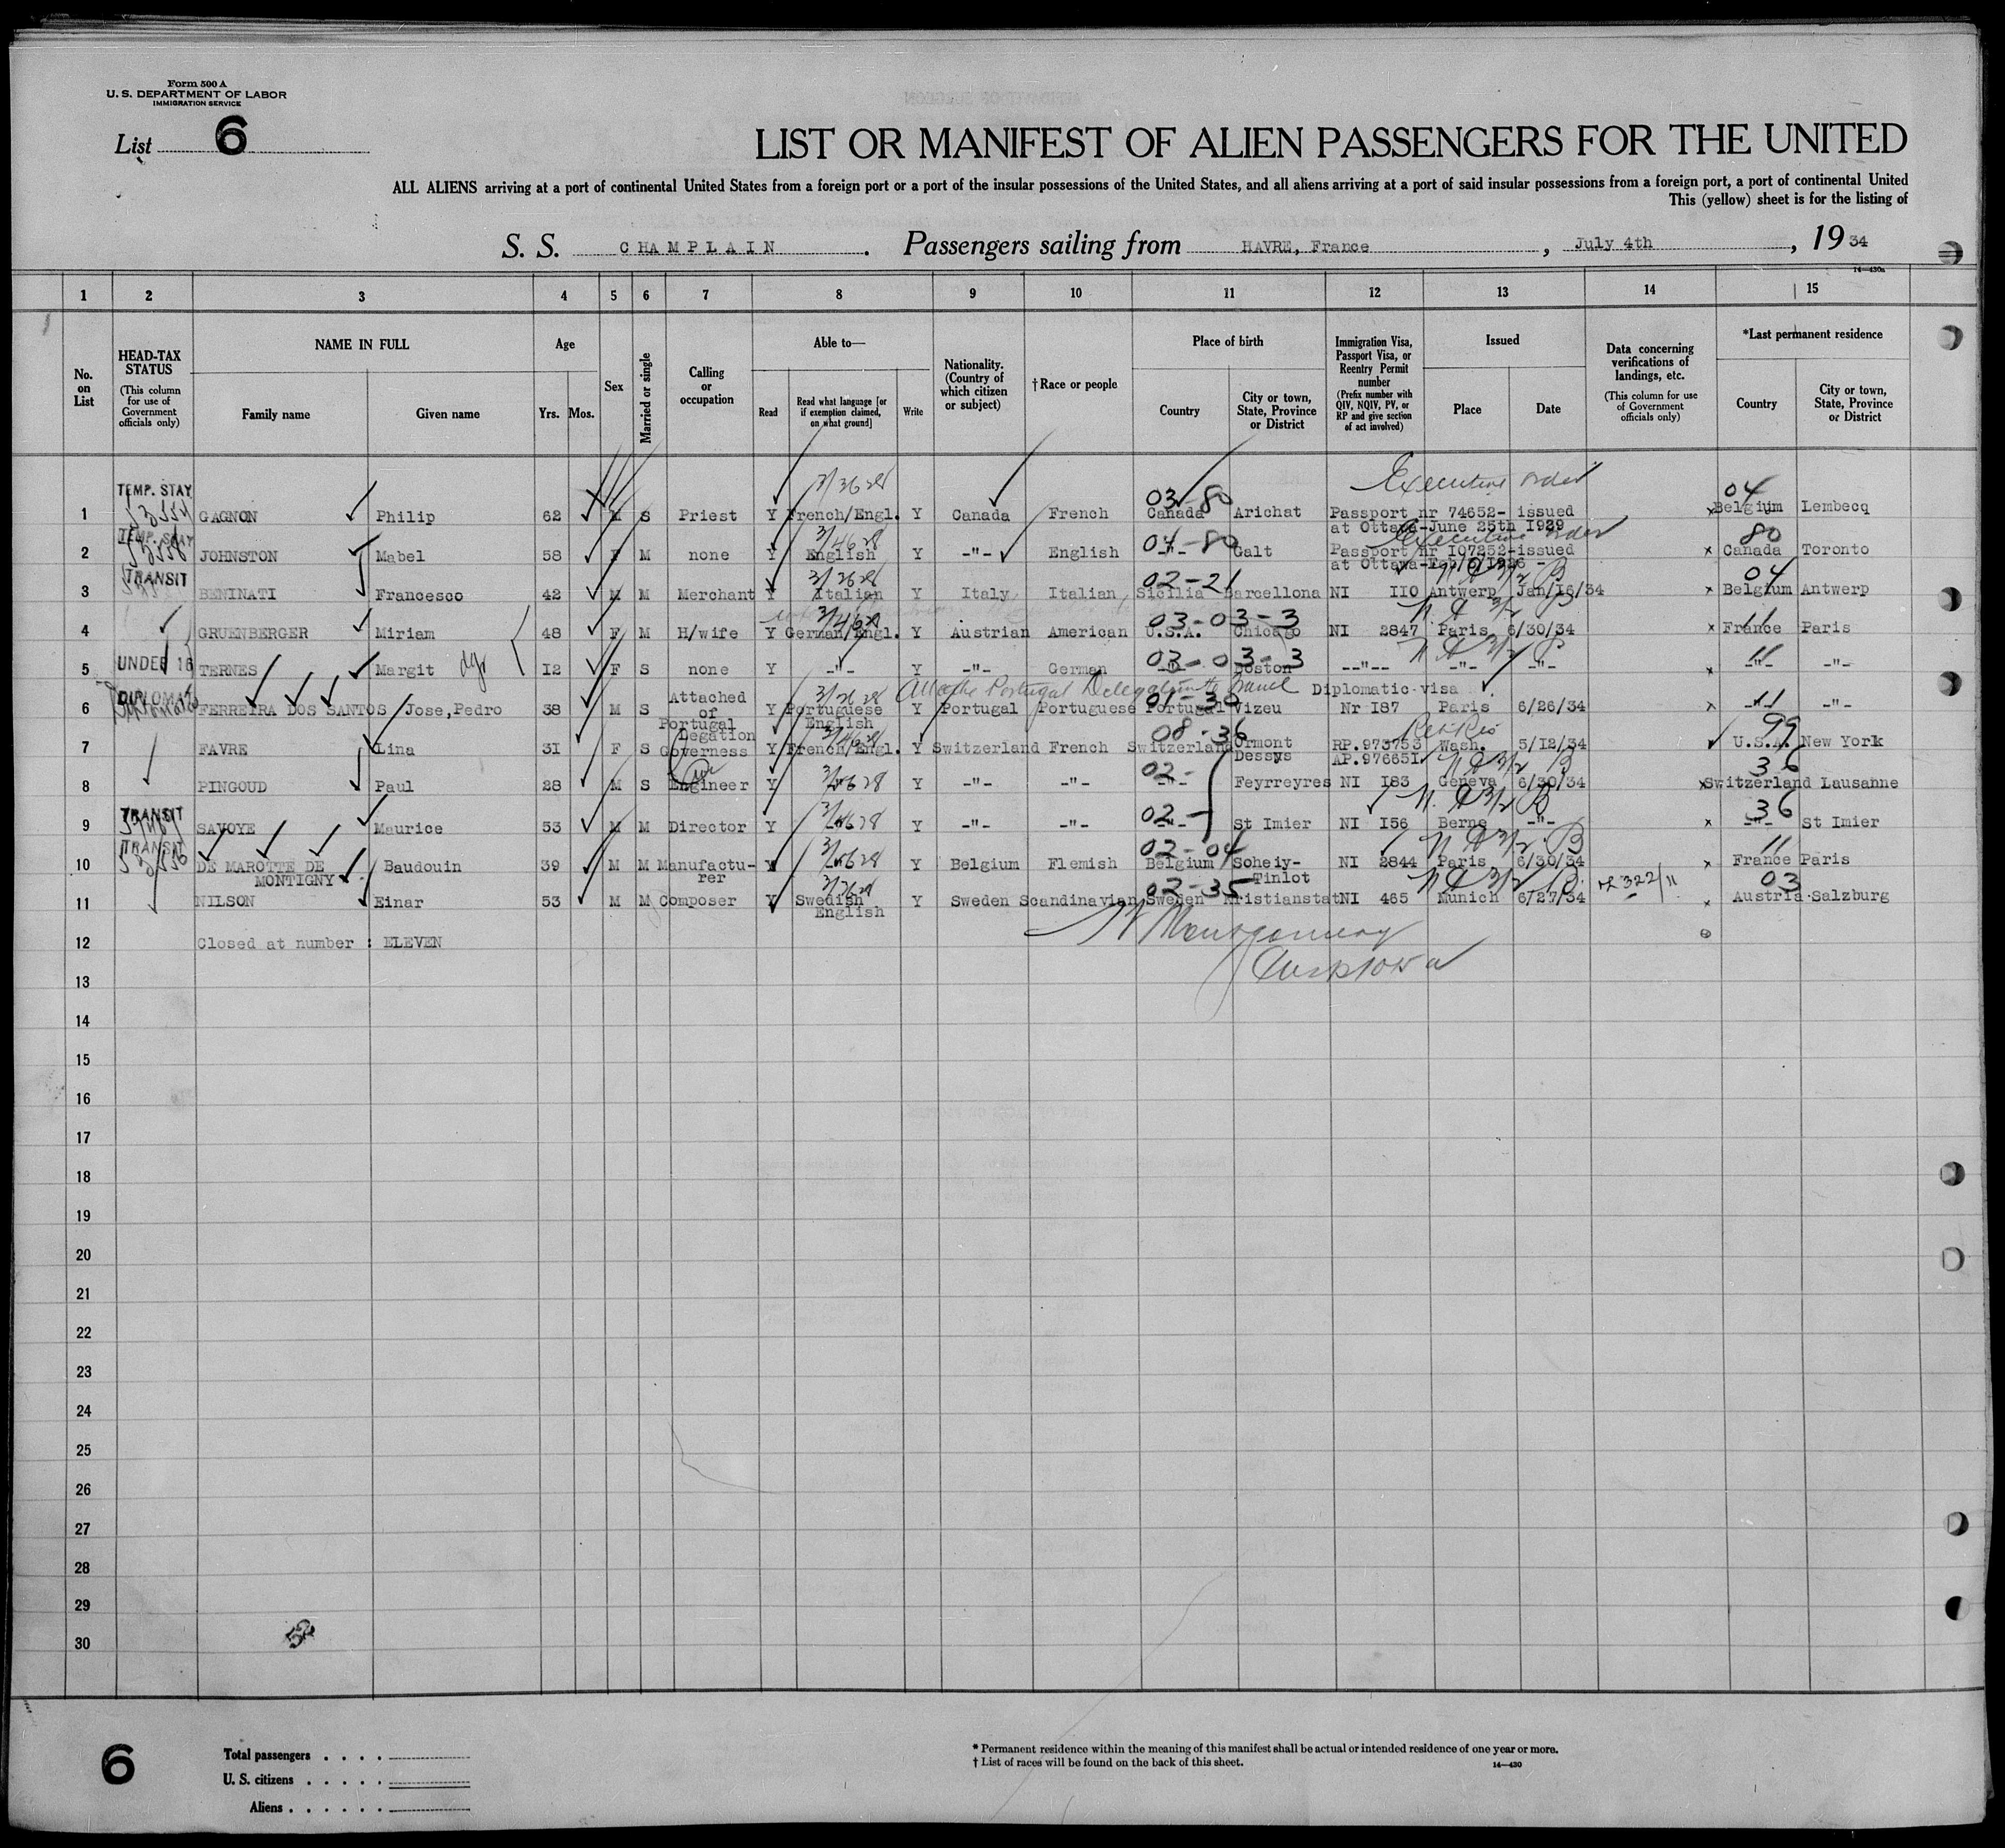 Form 500 A
U. S. DEPARTMENT OF LABOR
IMMIGRATION SERVICE
List 6
LIST OR MANIFEST OF ALIEN PASSENGERS FOR THE UNITED
ALL ALIENS arriving at a port of continental United States from a foreign port or a port of the insular possessions of the United States, and all aliens arriving at a port of said insular possessions from a foreign port, a port of continental United
This (yellow) sheet is for the listing of
S. S. CHAMPLAIN. Passengers sailing from HAVRE, France, July 4th, 1934
14—430a
1 2 3 4 5 6 7 8 9 10 11 12 13 14 15
No. on List
HEAD-TAX STATUS (This column for use of Government officials only)
NAME IN FULL
Family name
Given name
Age
Yrs. Mos.
Sex
Married or single
Calling or occupation
Able to—
Read
Read what language [or if exemption claimed, on what ground]
Write
Nationality. (Country of which citizen or subject)
†Race or people
Place of birth
Country
City or town, State, Province or District
Immigration Visa, Passport Visa, or Reentry Permit number (Prefix number with QIV, NQIV, PV, or RP and give section of act involved)
Issued
Place
Date
Data concerning verifications of landings, etc. (This column for use of Government officials only)
*Last permanent residence
Country
City or town, State, Province or District
TEMP. STAY 3/3628 03-80 Executive order 04
1 GAGNON Philip 62 M S Priest Y French/Engl. Y Canada French Canada Arichat Passport nr 74652- issued Belgium Lembecq
at Ottawa-June 25th 1929
TEMP. STAY 3/4628 04-80 Executive order 80
2 JOHNSTON Mabel 58 F M none Y English Y -"- English -"- Galt Passport nr 107252-issued Canada Toronto
at Ottawa-
TRANSIT 3/3628 02-21 04
3 BENINATI Francesco 42 M M Merchant Y Italian Y Italy Italian Sicilia Barcellona NI 110 Antwerp Jan/16/34 Belgium Antwerp
3/4628 03-03-3 11
4 GRUENBERGER Miriam 48 F M H/wife Y German/Engl. Y Austrian American U.S.A. Chicago NI 2847 Paris 6/30/34 France Paris
03-03-3 11
5 UNDER 16 TERNES Margit dgr 12 F S none Y -"- Y -"- German -"- Boston --"-- -"- -"- -"- -"-
DIPLOMAT 3/3628 Portugal Delegation 01-30 Diplomatic visa 11
6 FERREIRA DOS SANTOS Jose,Pedro 38 M S Attached of Portugal Degation Y Portuguese English Y Portugal Portuguese Portugal Vizeu Nr 187 Paris 6/26/34 -"- -"-
3/4628 08-36 99
7 FAVRE Lina 31 F S Governess Y French/Engl. Y Switzerland French Switzerland Ormont Dessys RP.973753 Wash. 5/12/34 U.S.A. New York
AP.976651
02- 36
8 PINGOUD Paul 28 M S Engineer Y -"- Y -"- -"- -"- Feyrreyres NI 183 Geneva 6/30/34 Switzerland Lausanne
TRANSIT 02- 36
9 SAVOYE Maurice 53 M M Director Y -"- Y -"- -"- -"- St Imier NI 156 Berne -"- -"- St Imier
TRANSIT 02-04 11
10 DE MAROTTE DE MONTIGNY Baudouin 39 M M Manufacturer Y -"- Y Belgium Flemish Belgium Soheiy-Tinlot NI 2844 Paris 6/30/34 France Paris
02-35 03
11 NILSON Einar 53 M M Composer Y Swedish English Y Sweden Scandinavian Sweden Kristianstat NI 465 Munich 6/27/34 Austria Salzburg
12 Closed at number : ELEVEN
Montgomery
13
14
15
16
17
18
19
20
21
22
23
24
25
26
27
28
29
30
52
6
Total passengers
U. S. citizens
Aliens
* Permanent residence within the meaning of this manifest shall be actual or intended residence of one year or more.
† List of races will be found on the back of this sheet.
14—430